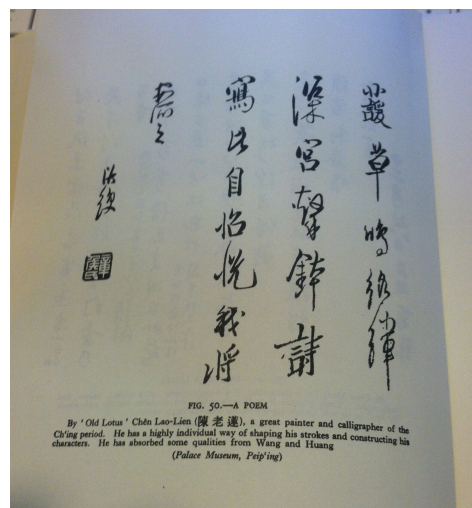 叢草鳴絡緯
深宮擊鉢詩
寫此自怡悅我將
之
洪綬
FIG. 50.—A POEM
By 'Old Lotus' Chên Lao-Lien (陳老蓮), a great painter and calligrapher of the
Ch'ing period. He has a highly individual way of shaping his strokes and constructing his
characters. He has absorbed some qualities from Wang and Huang
(Palace Museum, Peip'ing)